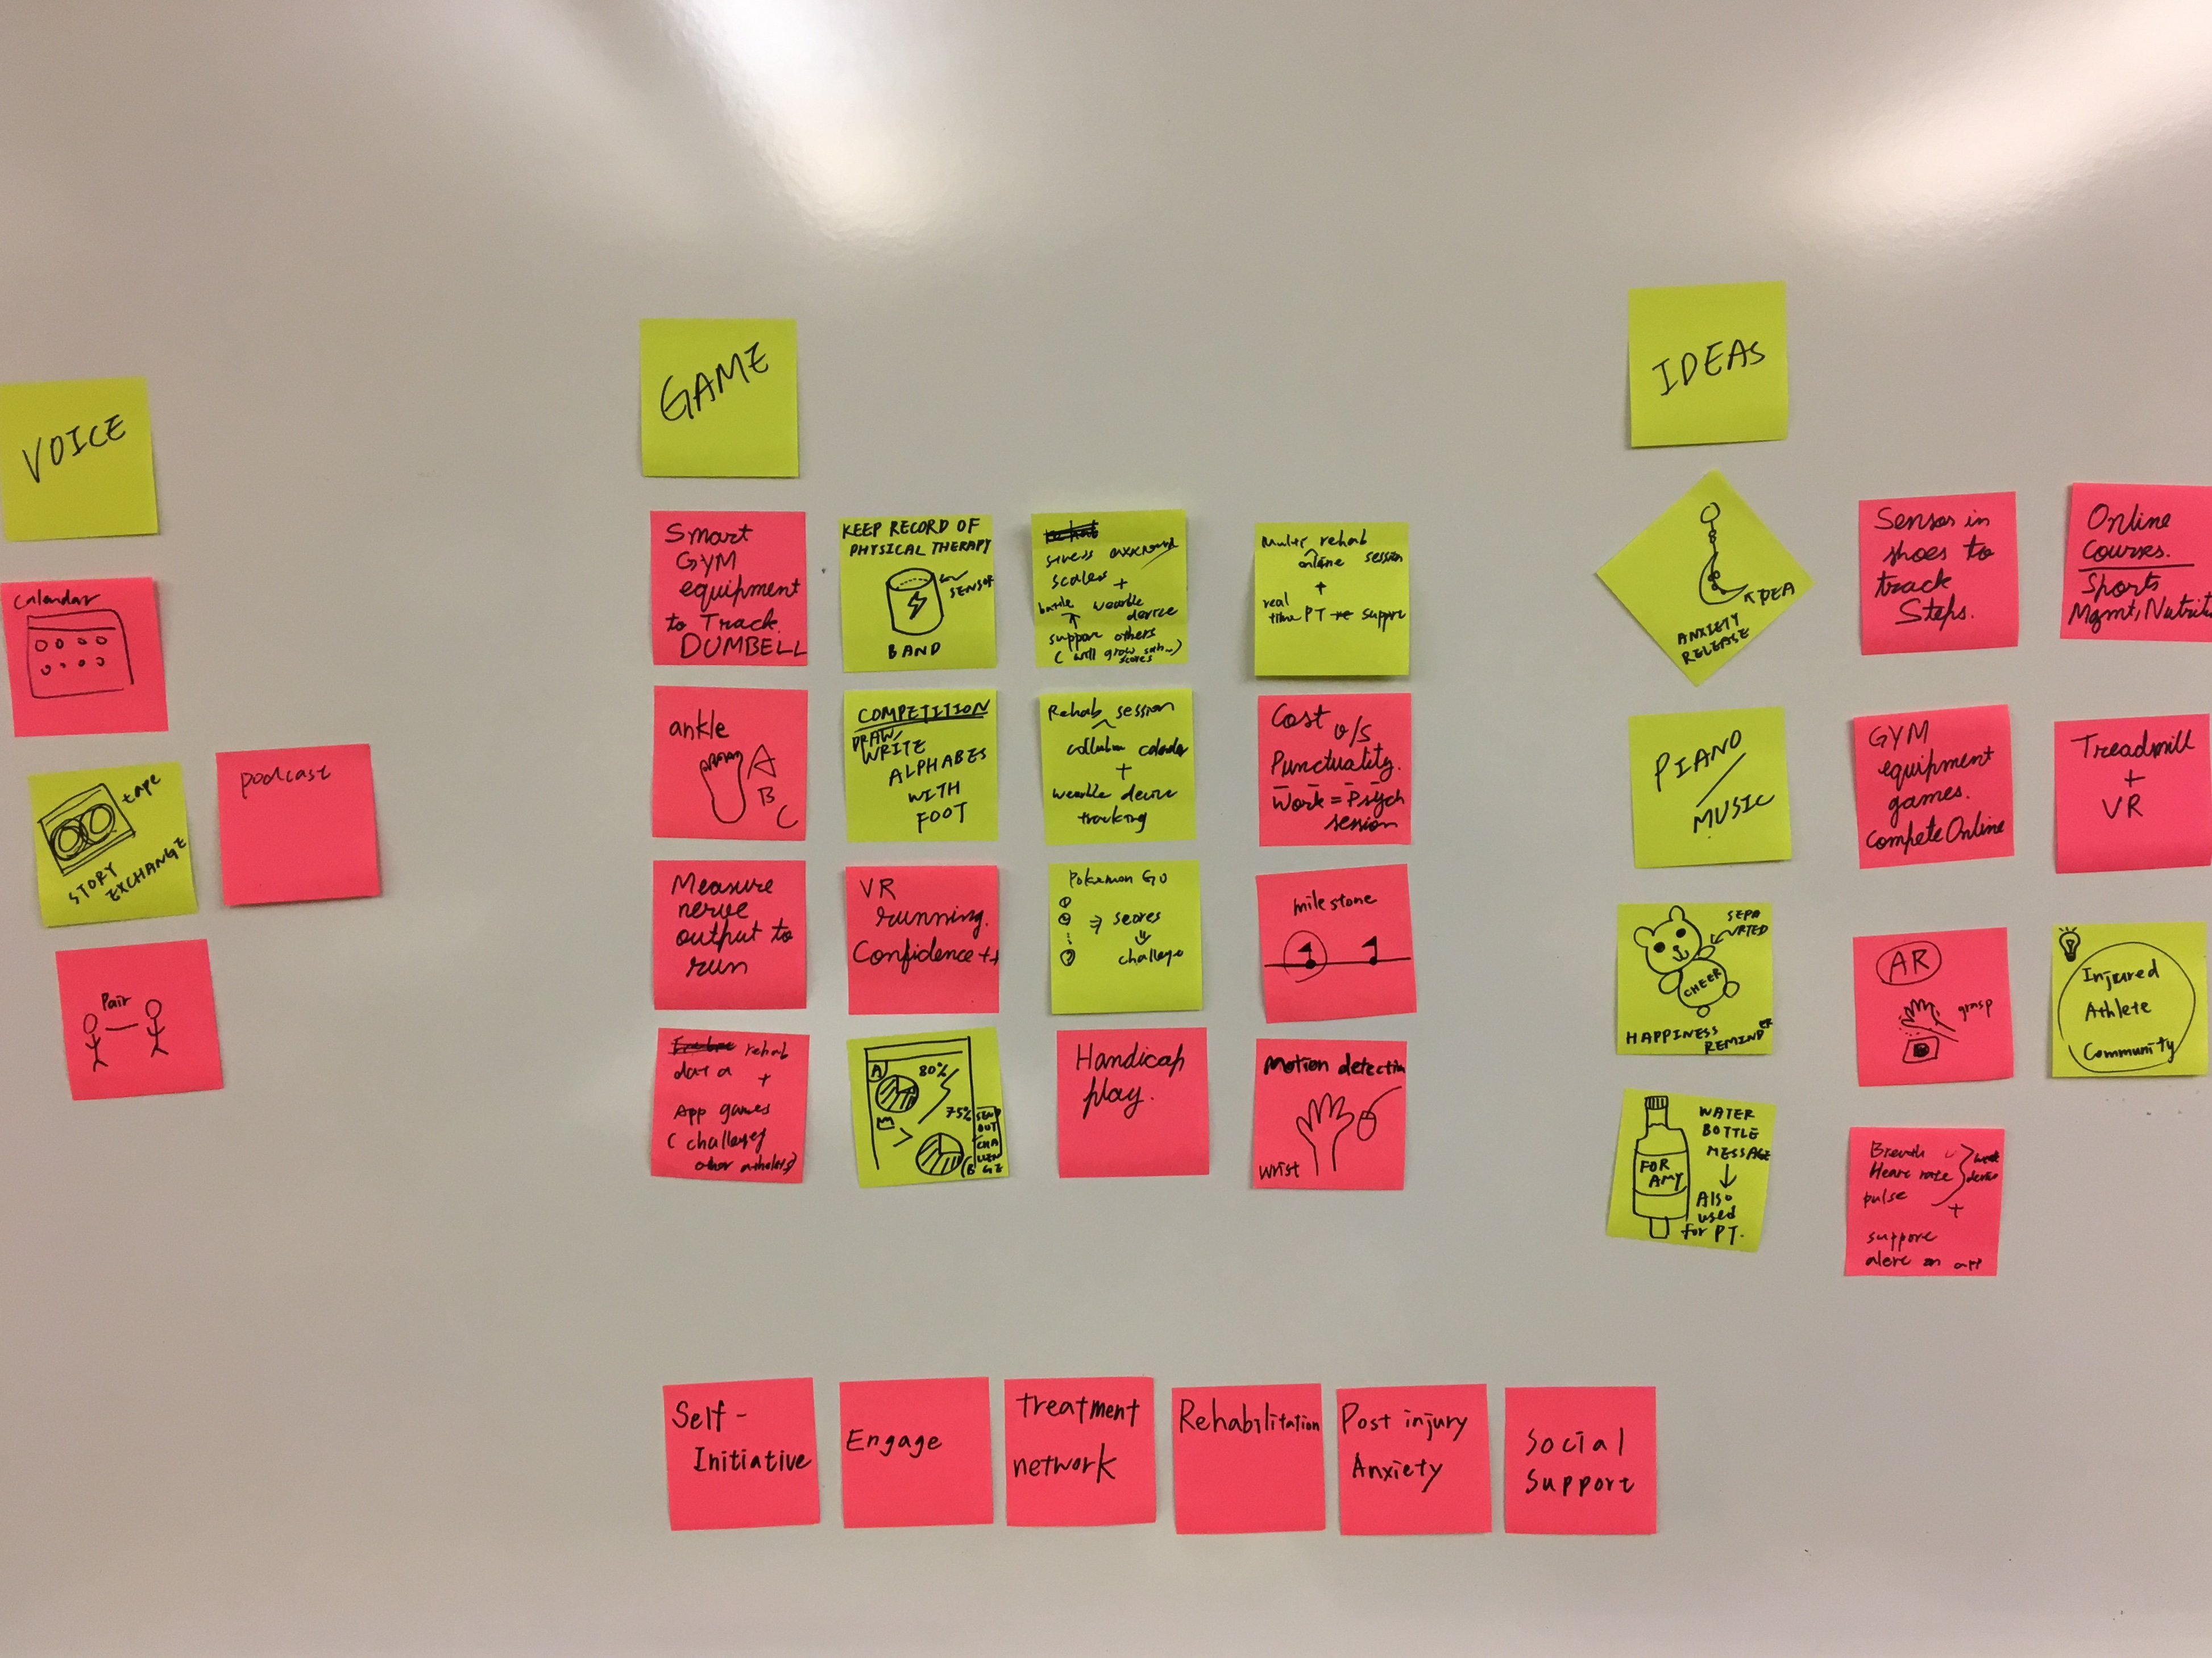 VOICE
Calendar
tape
STORY
EXCHANGE
podcast
Pair
GAME
Smart
GYM
equipment
to Track
DUMBELL
KEEP RECORD OF
PHYSICAL THERAPY
SENSOR
BAND
scales +
battle wearble
device
support others
( will grow
scores
rehab
online session
+
real
time PT support
ankle
A
B
C
COMPETITION
DRAW/
WRITE
ALPHABES
WITH
FOOT
Rehab session
+
wearble device
tracking
Cost v/s
Punctuality.
Work = Psych
session
Measure
nerve
output to
run
VR
running.
Confidence ++
Pokemon GO
⇒ scores
⇓
challenge
milestone
rehab
data +
App games
( challenges
other athletes)
A
80%
75%
B
SEND
OUT
CHA
LLEN
GE
Handicap
play.
Motion detection
wrist
IDEAS
IDEA
ANXIETY
RELEASE
Sensor in
shoes to
track
Steps.
Online
Courses.
Sports
Mgmt, Nutriti
PIANO
/
MUSIC
GYM
equipment
games.
Compete Online
Treadmill
+
VR
SEPA
RTED
CHEER
HAPPINESS
REMINDER
AR
grasp
Injured
Athlete
Community
FOR
AMY
WATER
BOTTLE
MESSAGE
↓
Also
used
for PT.
Breath
Heart rate
pulse
+
support
alert on app
Self-
Initiative
Engage
Treatment
network
Rehabilitation
Post injury
Anxiety
Social
Support